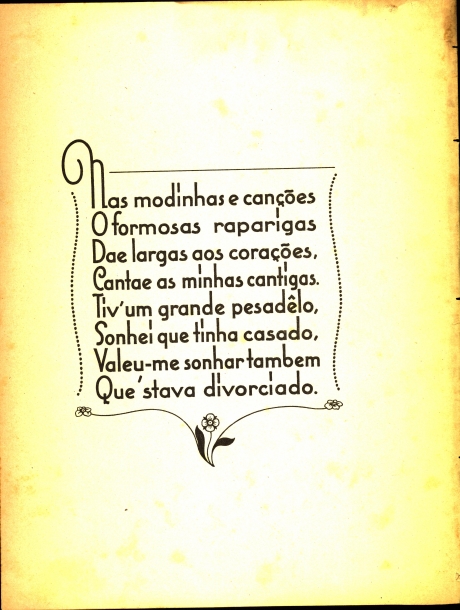 Nas modinhas e canções
O formosas raparigas
Dae largas aos corações,
Cantae as minhas cantigas.
Tiv'um grande pesadêlo,
Sonhei que tinha casado,
Valeu-me sonhar tambem
Que 'stava divorciado.